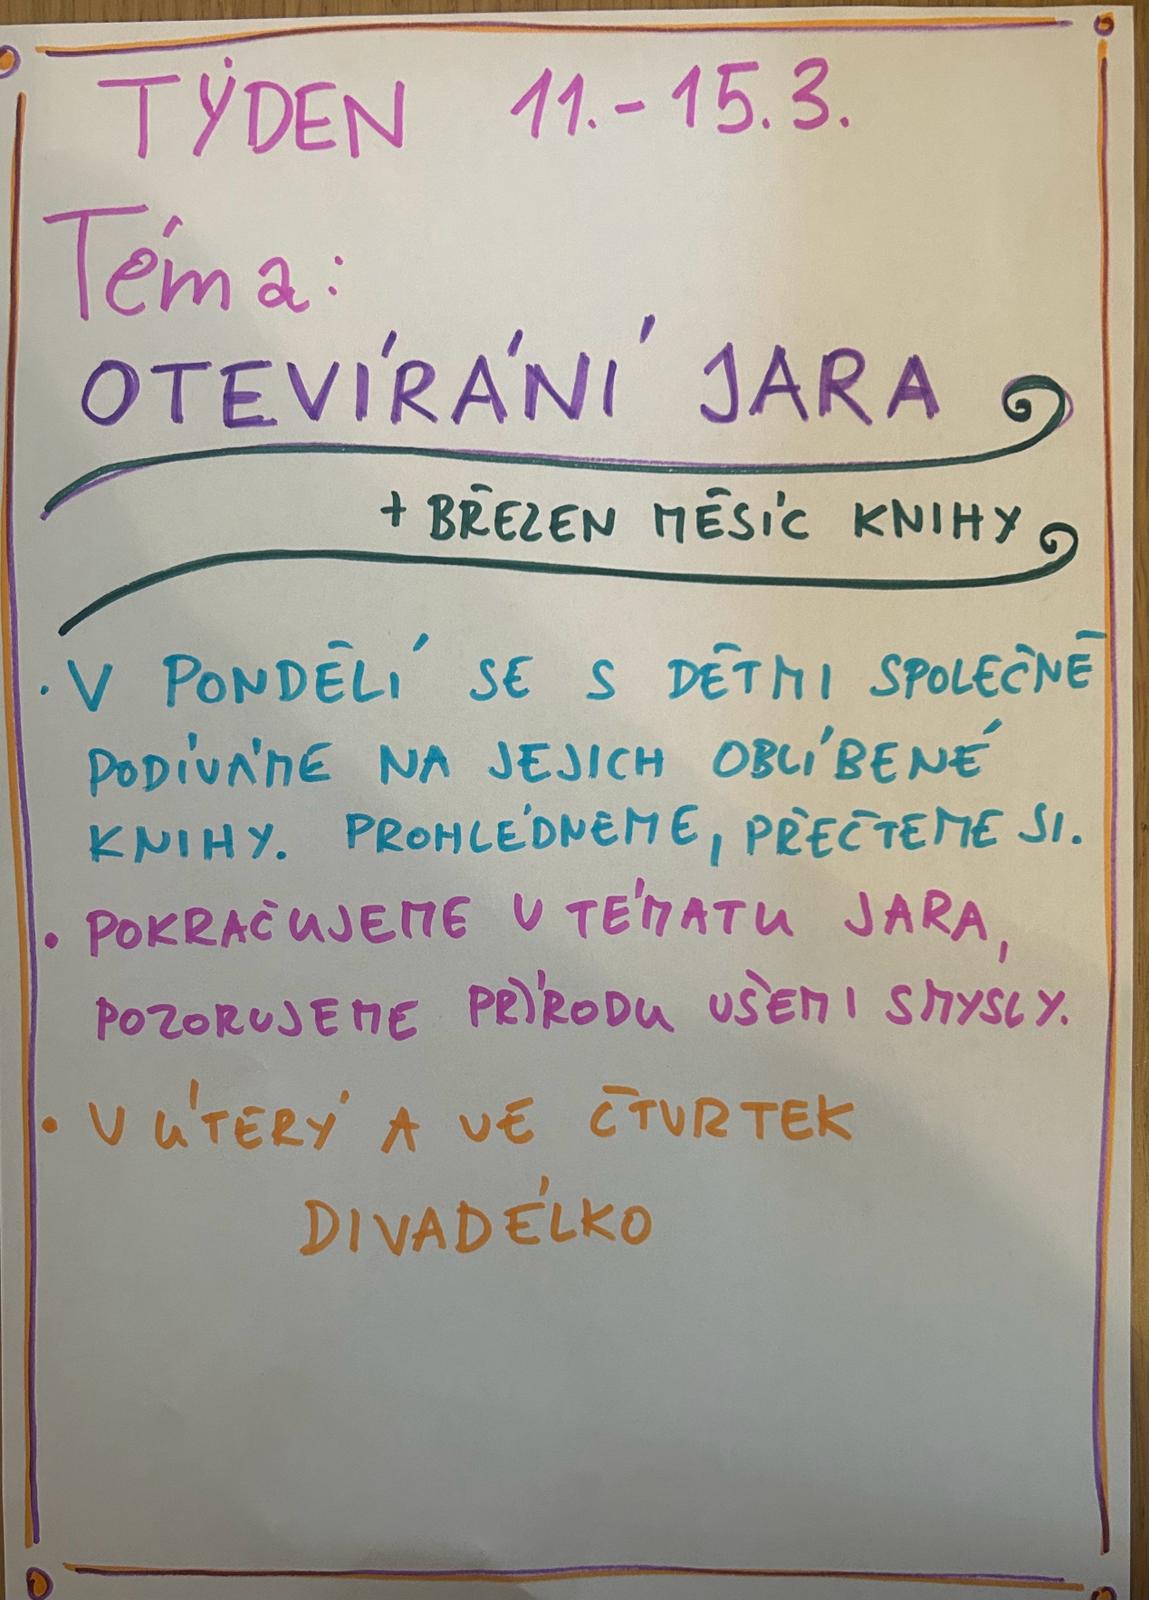 TÝDEN 11.-15.3.
Téma:
OTEVÍRÁNÍ JARA
+ BŘEZEN MĚSÍC KNIHY
· V PONDĚLÍ SE S DĚTMI SPOLEČNĚ
PODÍVÁME NA JEJICH OBLÍBENÉ
KNIHY. PROHLÉDNEME, PŘEČTEME SI.
· POKRAČUJEME V TÉMATU JARA,
POZORUJEME PŘÍRODU VŠEMI SMYSLY.
· V ÚTERÝ A VE ČTVRTEK
DIVADÉLKO